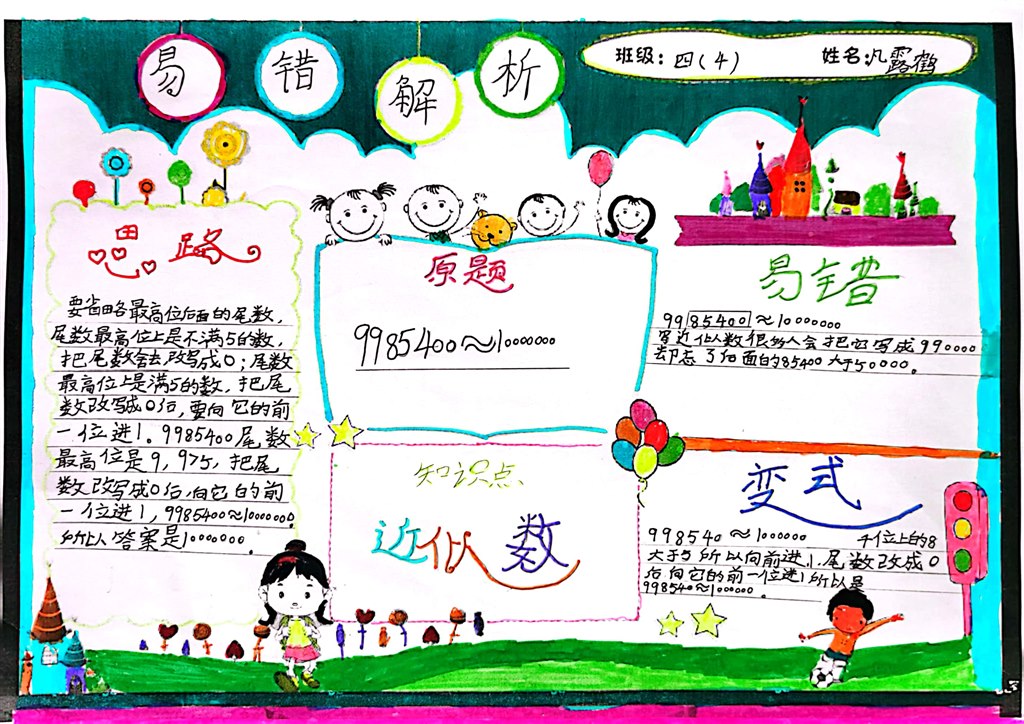 易错解析
班级：四（4）
姓名：凡露鹤
思路
要省略最高位后面的尾数，
尾数最高位上是不满5的数，
把尾数舍去改写成0；尾数
最高位上是满5的数，把尾
数改写成0后，要向它的前
一位进1。9985400尾数
最高位是9，9>5，把尾
数改写成0后，向它的前
一位进1，9985400≈10000000。
所以答案是10000000。
原题
9985400≈10000000
知识点
近似数
易错
9985400≈10000000
写近似数很多人会把它写成990000
却忘了后面的85400大于50000。
变式
998540≈1000000 千位上的8
大于5所以向前进1.尾数改成0
后向它的前一位进1所以是
998540≈1000000。